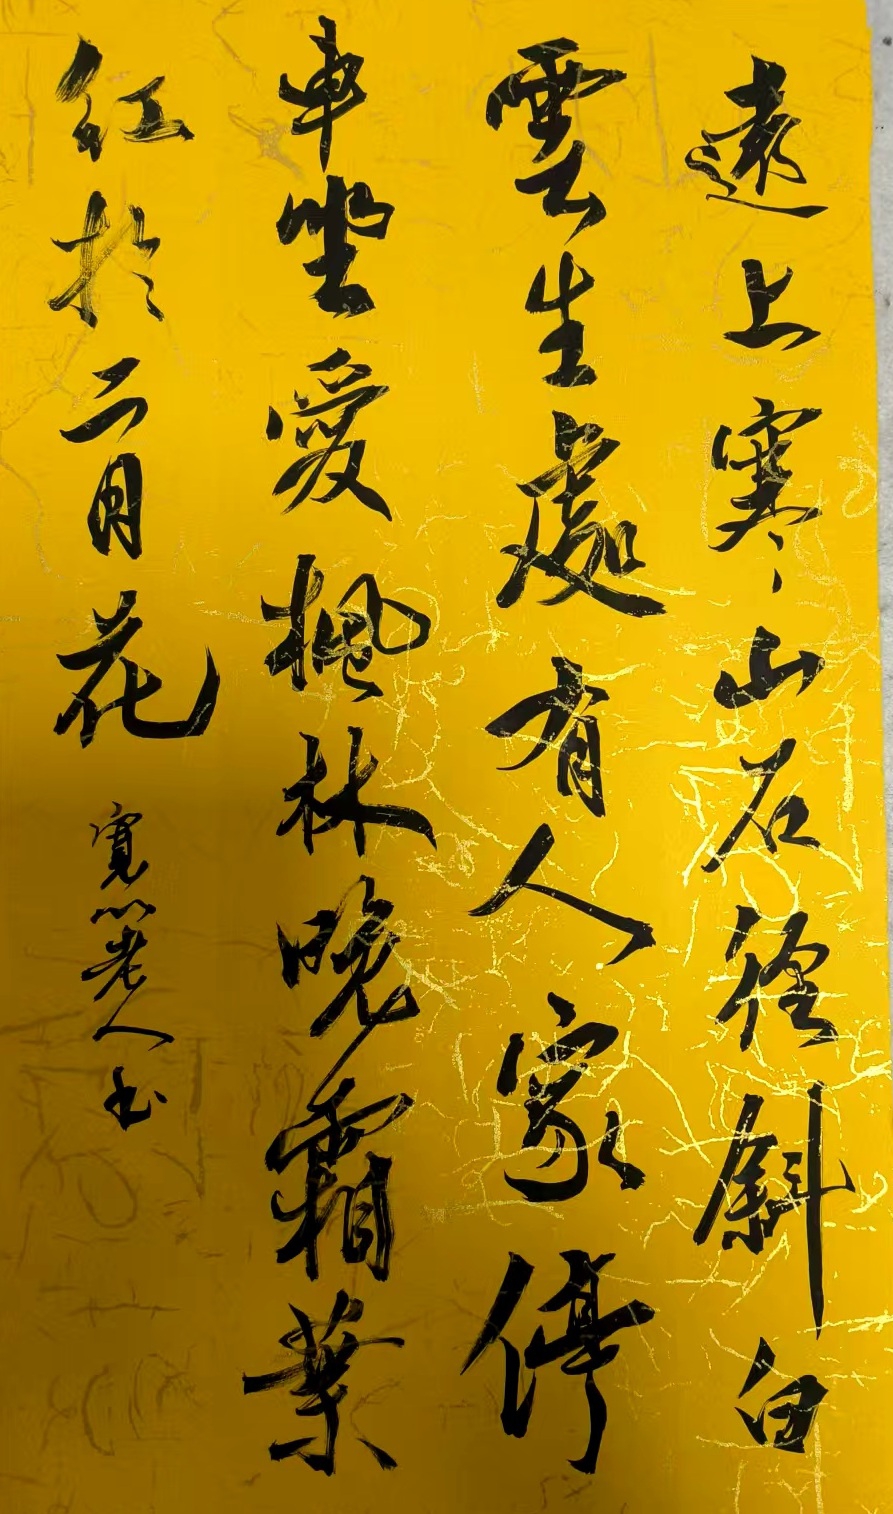 遠上寒山石徑斜白
雲生處有人家停
車坐愛楓林晚霜葉
紅於二月花
寬心老人书